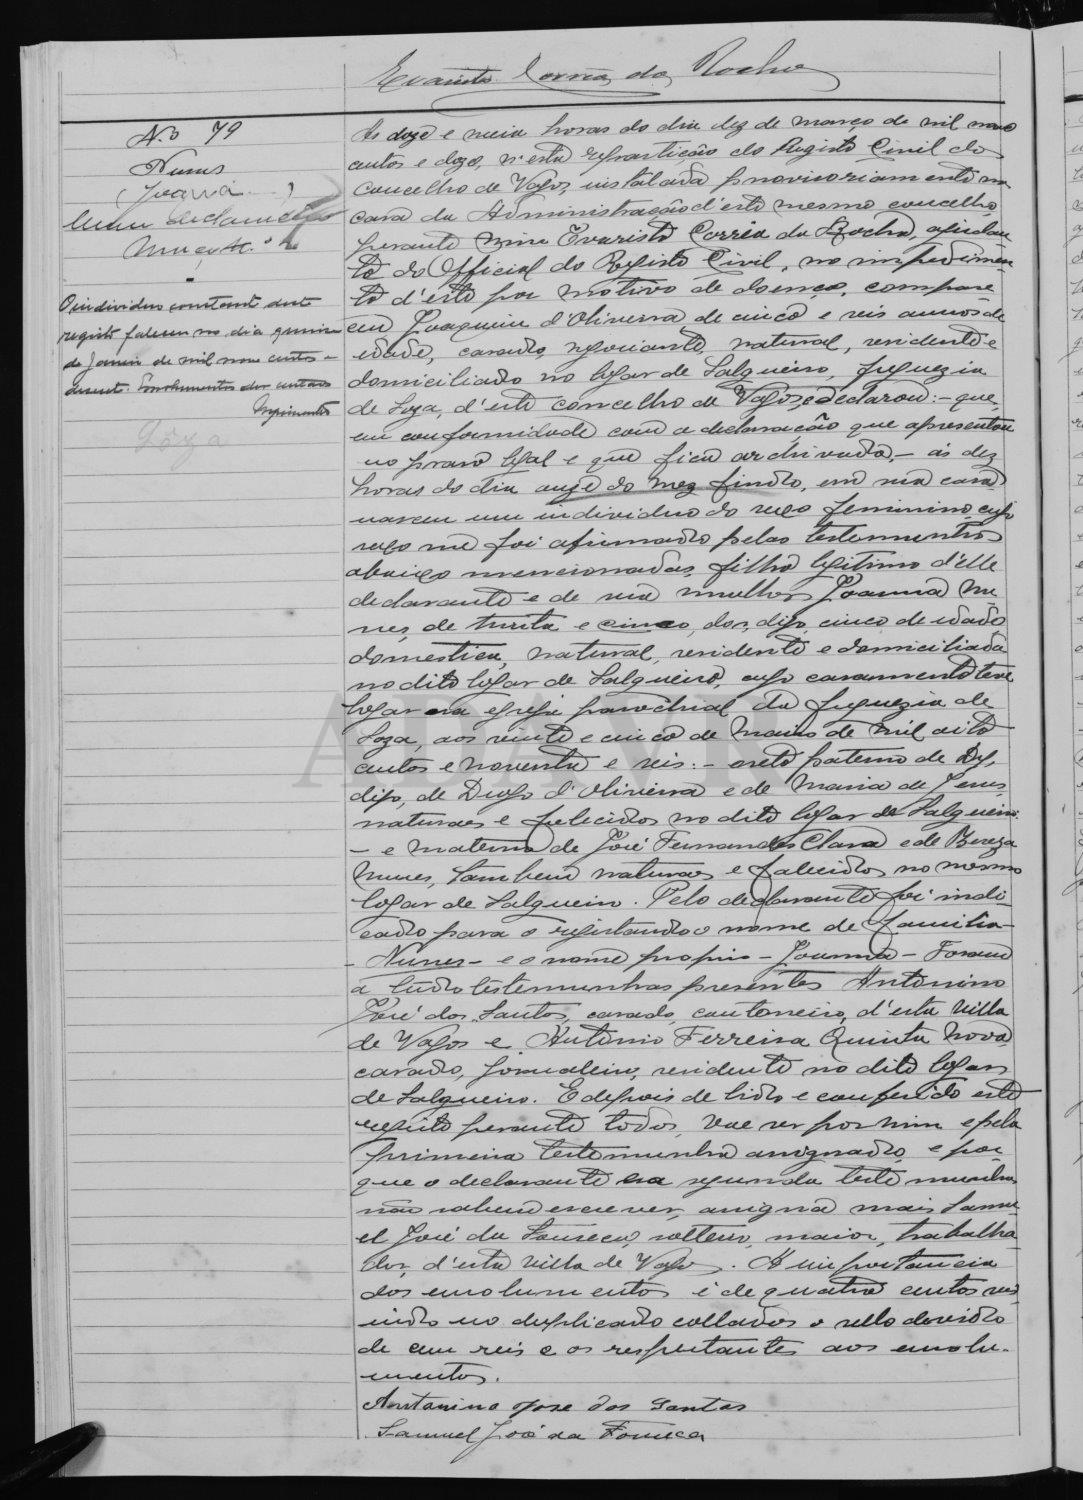 Evaristo Corrêa da Rocha
N.º 79
Nunes
(Joanna)
Uma declaração
O individuo constante deste
registo faleceu no dia quinze
de Janeiro de mil nove centos e
Emolumentos dez centavos
Loza
As doze e meia horas do dia dez de março de mil nove
centos e doze, n'esta repartição do Registo Civil do
concelho de Vagos, installada provisoriamente na
casa da Administração d'este mesmo concelho,
perante mim Evaristo Corrêa da Rocha, ajudan
te do Official do Registo Civil, no impedimen
to d'este por motivo de doença, compare
ceu Joaquim d'Oliveira de cinco e seis annos de
edade, casado, negociante, natural, residente e
domiciliado no logar de Salgueiro, freguezia
de Soza, d'este concelho de Vagos, e declarou: - que,
em conformidade com a declaração que apresentou
no praso legal e que fica archivada, - ás dez
horas do dia onze do mez findo, em sua casa
nasceu um individuo do sexo feminino, cujo
sexo me foi afirmado pelas testemunhas
abaixo mencionadas, filho legitimo d'elle
declarante e de sua mulher Joanna Nu
nes, de trinta e cinco, dos, digo, cinco de edade
domestica, natural, residente e domiciliada
no dito logar de Salgueiro, cujo casamento teve
logar na egreja parochial da freguezia de
Soza, aos vinte e cinco de Maio de mil oito
centos e noventa e seis: - neto paterno de Di,
digo, de Diogo d'Oliveira e de Maria de Jesus,
naturaes e falecidos no dito logar de Salgueiro
- e materno de José Fernandes Clara e de Thereza
Nunes, tambem naturaes e falecidos no mesmo
logar de Salgueiro. Pelo declarante foi indi
cado para o registando o nome de familia -
- Nunes - e o nome proprio - Joanna - Foram
a tudo testemunhas presentes Antonino
José dos Santos, casado, cantoneiro, d'esta villa
de Vagos e Antonio Ferreira Quinta Nova,
casado, jornaleiro, residente no dito logar
de Salgueiro. E depois de lido e conferido este
registo perante todos, vae ser por mim e pela
primeira testemunha assignado, e por
que o declarante e a segunda testemunha
não sabem escrever, assigna mais Samu
el José da Fonseca, solteiro, maior, trabalha
dor, d'esta villa de Vagos. A importancia
dos emolumentos é de quatro centos reis
indo no duplicado collados o sello devido
de cem reis e os respeitantes aos emolu-
mentos.
Antonino Jose dos Santos
Samuel José da Fonseca